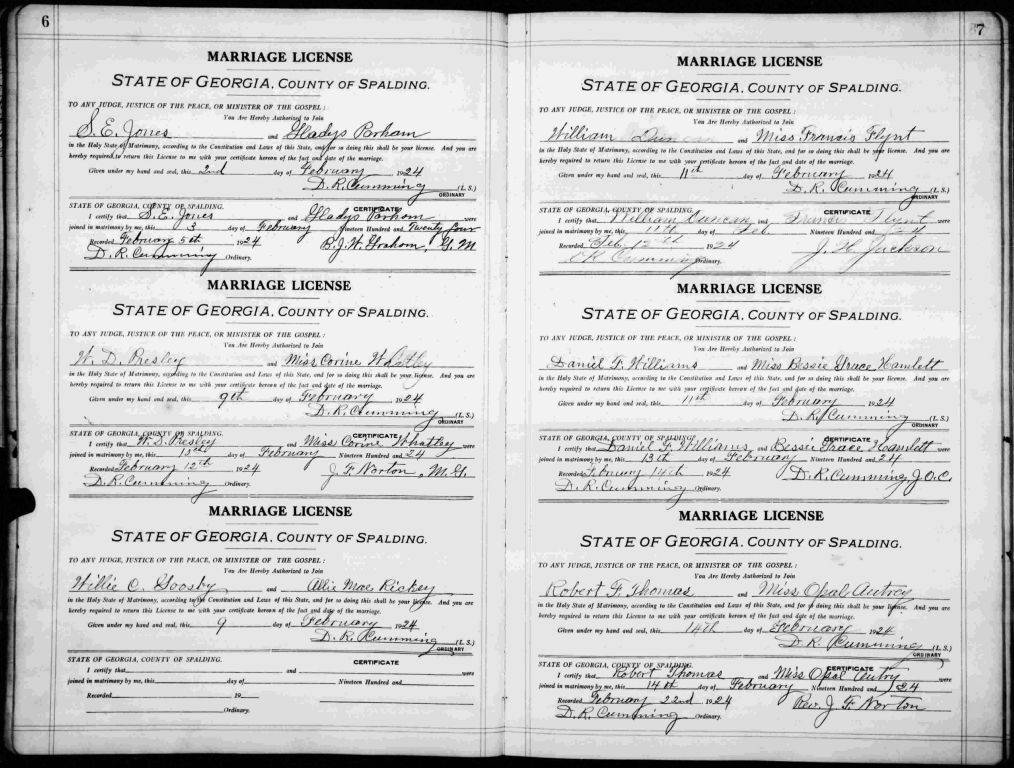 6
MARRIAGE LICENSE
STATE OF GEORGIA, COUNTY OF SPALDING.
TO ANY JUDGE, JUSTICE OF THE PEACE, OR MINISTER OF THE GOSPEL:
You Are Hereby Authorized to Join
S. E. Jones and Gladys Parham
in the Holy State of Matrimony, according to the Constitution and Laws of this State, and for so doing this shall be your license. And you are
hereby required to return this License to me with your certificate hereon of the fact and date of the marriage.
Given under my hand and seal, this 2nd day of February 1924
D. R. Cumming (L. S.)
ORDINARY
STATE OF GEORGIA, COUNTY OF SPALDING. CERTIFICATE
I certify that S. E. Jones and Gladys Parham were
joined in matrimony by me, this 3 day of February Nineteen Hundred and Twenty four
Recorded February 5th 1924 B. J. W. Graham, M.
D. R. Cumming Ordinary.
MARRIAGE LICENSE
STATE OF GEORGIA, COUNTY OF SPALDING.
TO ANY JUDGE, JUSTICE OF THE PEACE, OR MINISTER OF THE GOSPEL:
You Are Hereby Authorized to Join
W. D. Presley and Miss Corine Whatley
in the Holy State of Matrimony, according to the Constitution and Laws of this State, and for so doing this shall be your license. And you are
hereby required to return this License to me with your certificate hereon of the fact and date of the marriage.
Given under my hand and seal, this 9th day of February 1924
D. R. Cumming (L. S.)
ORDINARY
STATE OF GEORGIA, COUNTY OF SPALDING. CERTIFICATE
I certify that Presley and Miss Corine Whatley were
joined in matrimony by me, this day of February Nineteen Hundred and 24
Recorded February 12th 1924 J. F. Norton, M. G.
D. R. Cumming Ordinary.
MARRIAGE LICENSE
STATE OF GEORGIA, COUNTY OF SPALDING.
TO ANY JUDGE, JUSTICE OF THE PEACE, OR MINISTER OF THE GOSPEL:
You Are Hereby Authorized to Join
Willie C. Goosby and Allie Mae Rickey
in the Holy State of Matrimony, according to the Constitution and Laws of this State, and for so doing this shall be your license. And you are
hereby required to return this License to me with your certificate hereon of the fact and date of the marriage.
Given under my hand and seal, this 9 day of February 1924
D. R. Cumming (L. S.)
ORDINARY
STATE OF GEORGIA, COUNTY OF SPALDING. CERTIFICATE
I certify that and were
joined in matrimony by me, this day of Nineteen Hundred and
Recorded 19
Ordinary.
7
MARRIAGE LICENSE
STATE OF GEORGIA, COUNTY OF SPALDING.
TO ANY JUDGE, JUSTICE OF THE PEACE, OR MINISTER OF THE GOSPEL:
You Are Hereby Authorized to Join
William Duncan and Miss Francis Flynt
in the Holy State of Matrimony, according to the Constitution and Laws of this State, and for so doing this shall be your license. And you are
hereby required to return this License to me with your certificate hereon of the fact and date of the marriage.
Given under my hand and seal, this 11th day of February 1924
D. R. Cumming (L. S.)
ORDINARY
STATE OF GEORGIA, COUNTY OF SPALDING. CERTIFICATE
I certify that William Duncan and Flynt were
joined in matrimony by me, this 11th day of Feb Nineteen Hundred and 24
Recorded Feb 12th 1924 J. H. Jackson
Cumming Ordinary.
MARRIAGE LICENSE
STATE OF GEORGIA, COUNTY OF SPALDING.
TO ANY JUDGE, JUSTICE OF THE PEACE, OR MINISTER OF THE GOSPEL:
You Are Hereby Authorized to Join
Daniel F. Williams and Miss Bessie Grace Hamlett
in the Holy State of Matrimony, according to the Constitution and Laws of this State, and for so doing this shall be your license. And you are
hereby required to return this License to me with your certificate hereon of the fact and date of the marriage.
Given under my hand and seal, this 11th day of February 1924
D. R. Cumming (L. S.)
ORDINARY
STATE OF GEORGIA, COUNTY OF SPALDING. CERTIFICATE
I certify that Daniel F. Williams and Bessie Grace Hamlett were
joined in matrimony by me, this 13th day of February Nineteen Hundred and 24
Recorded February 14th 1924 D. R. Cumming, J. O. C.
D. R. Cumming Ordinary.
MARRIAGE LICENSE
STATE OF GEORGIA, COUNTY OF SPALDING.
TO ANY JUDGE, JUSTICE OF THE PEACE, OR MINISTER OF THE GOSPEL:
You Are Hereby Authorized to Join
Robert F. Thomas and Miss Opal Autrey
in the Holy State of Matrimony, according to the Constitution and Laws of this State, and for so doing this shall be your license. And you are
hereby required to return this License to me with your certificate hereon of the fact and date of the marriage.
Given under my hand and seal, this 14th day of February 1924
D. R. Cumming (L. S.)
ORDINARY
STATE OF GEORGIA, COUNTY OF SPALDING. CERTIFICATE
I certify that Robert Thomas and Miss Opal Autry were
joined in matrimony by me, this 14th day of February Nineteen Hundred and 24
Recorded February 22nd 1924 Rev. J. F. Norton
D. R. Cumming Ordinary.